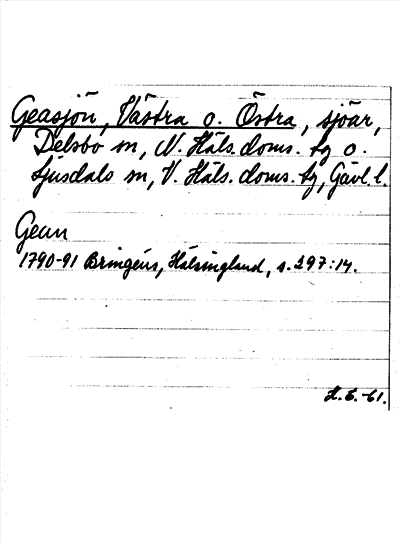 Geasjön, Västra o. Östra, sjöar,
Delsbo sn, N. Häls. doms. tg o.
Ljusdals sn, V. Häls. doms. tg, Gävl. l.
Gean
1790-91 Bringéus, Hälsingland, s. 297:14.
H. S. -61.